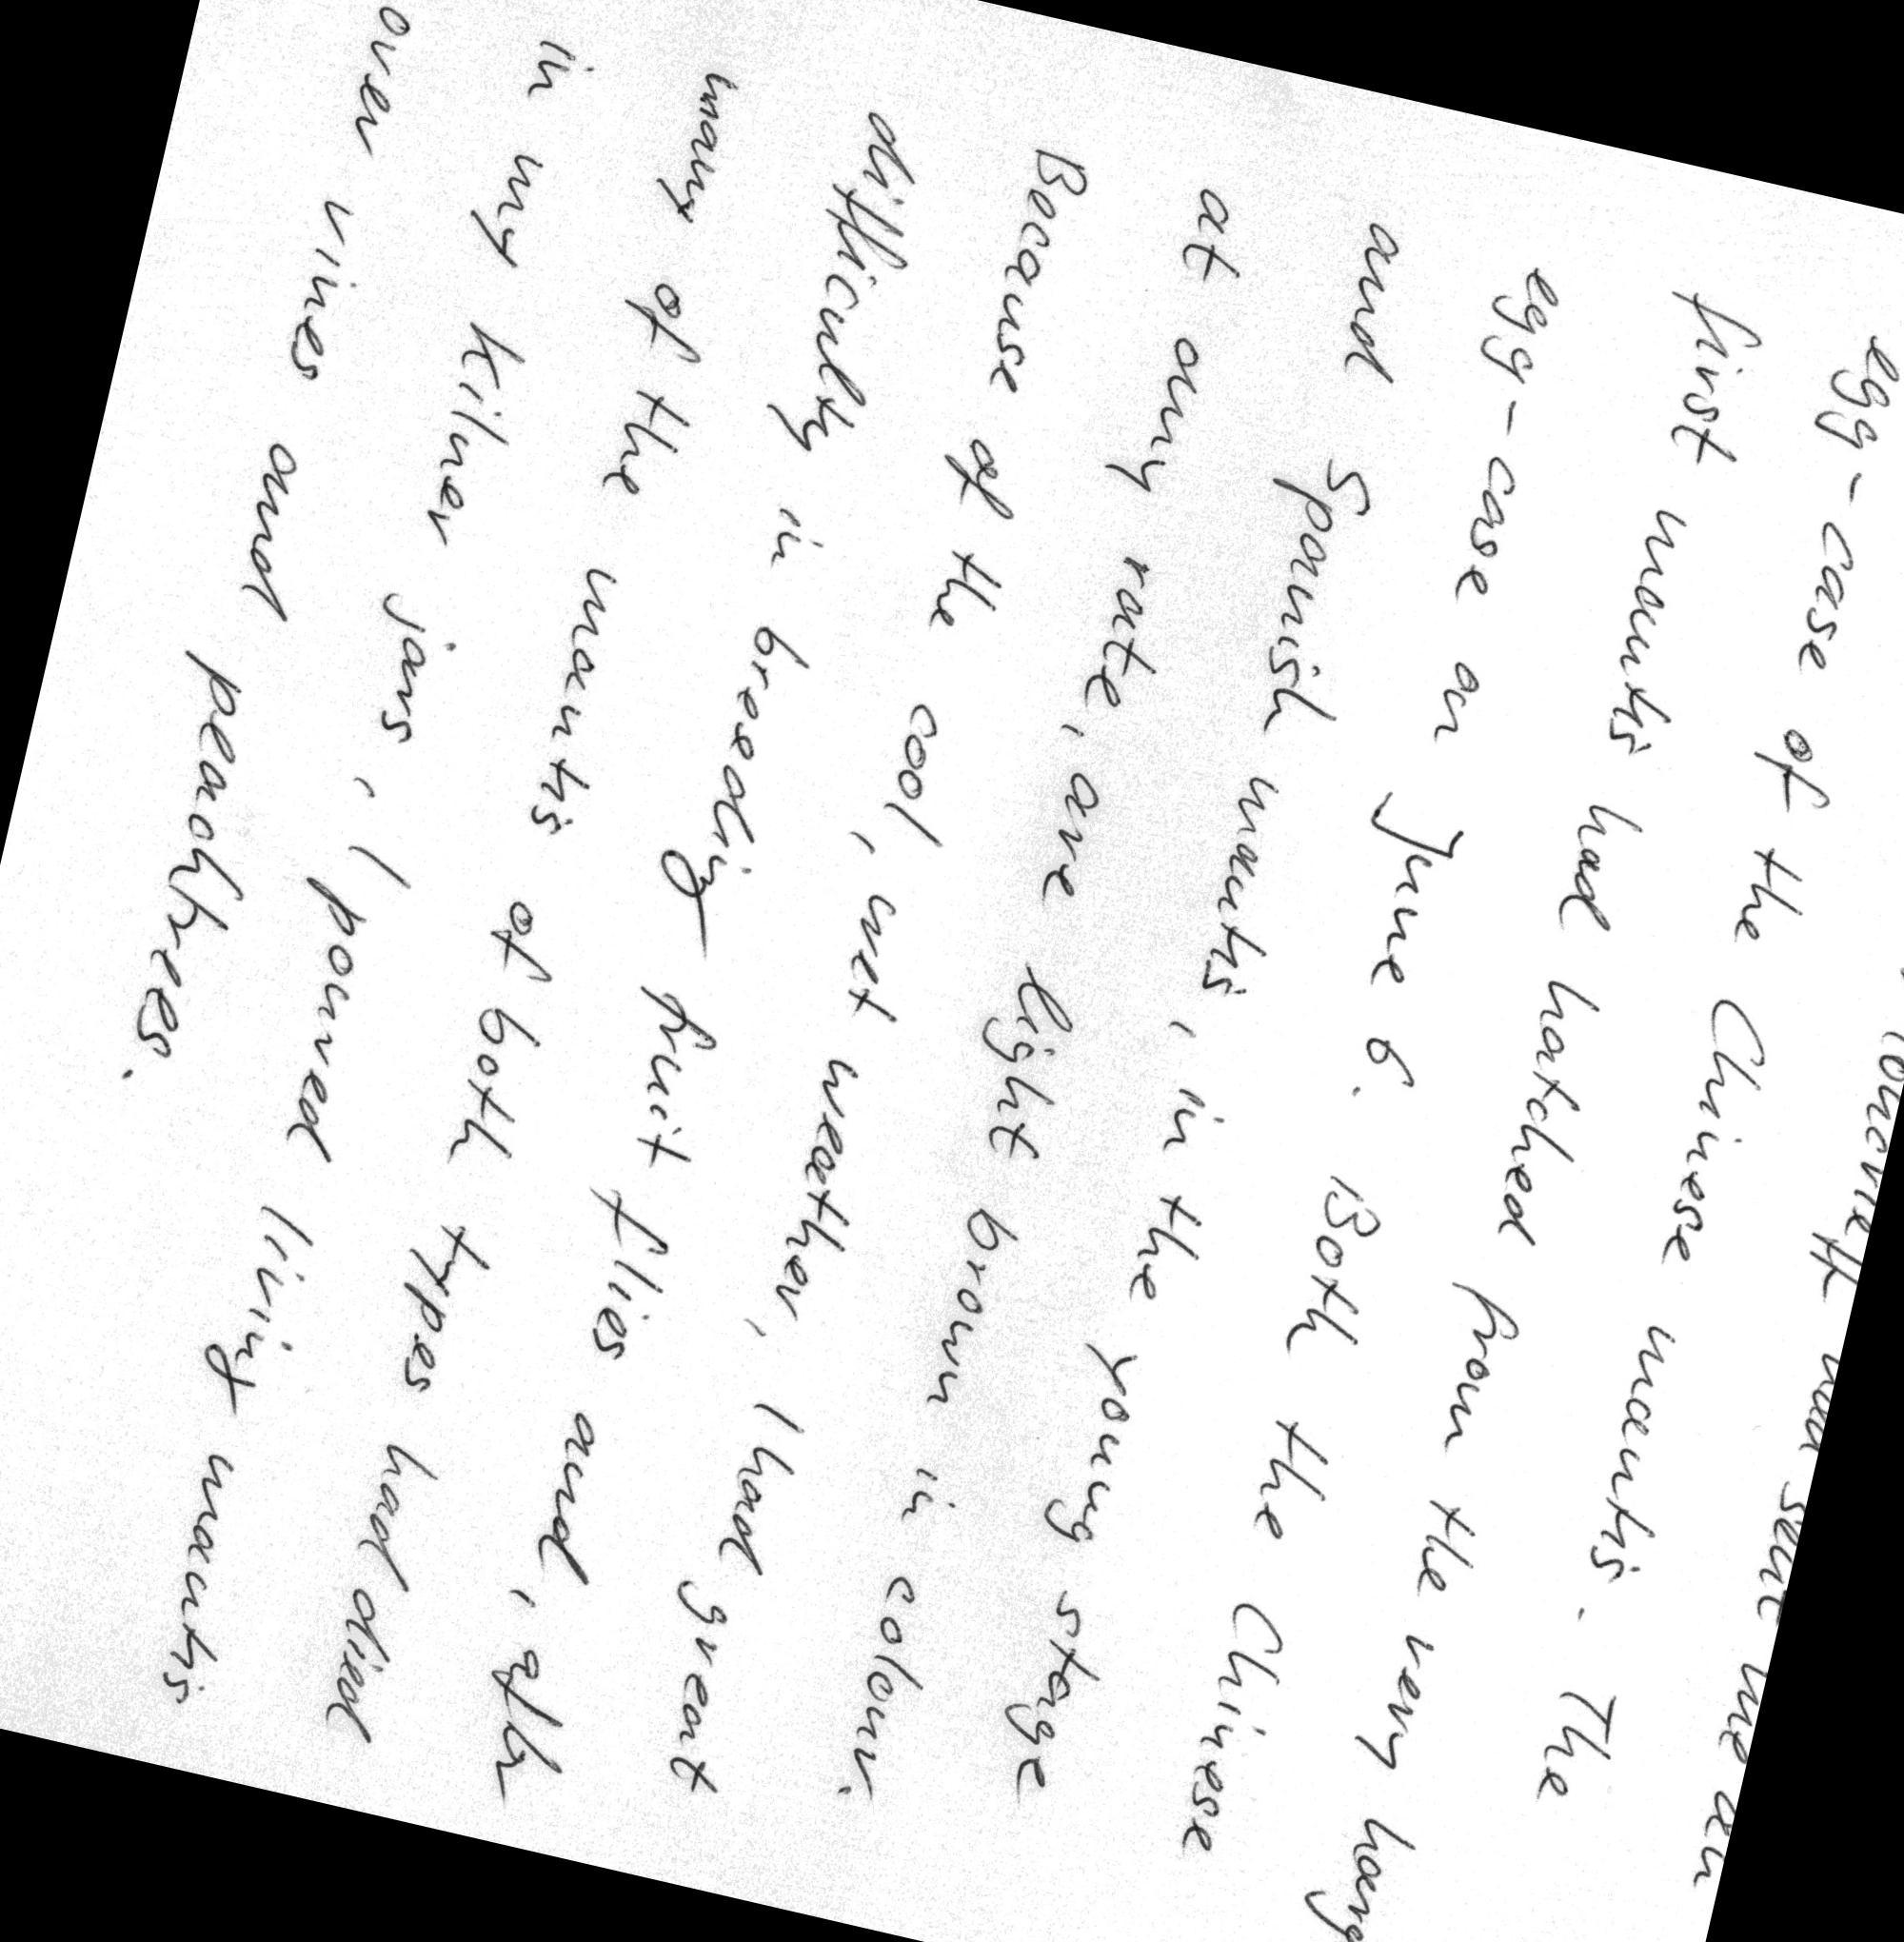 had sent me an
egg-case of the Chinese mantis. The
first mantis had hatched from the very hard
egg-case on June 6. Both the Chinese
and Spanish mantis, in the young stage
at any rate, are light brown in colour.
Because of the cool, wet weather, I had great
difficulty in breeding fruit flies and, after
many of the mantis of both types had died
in my kilner jars, I poured living mantis
over vines and peachtrees.